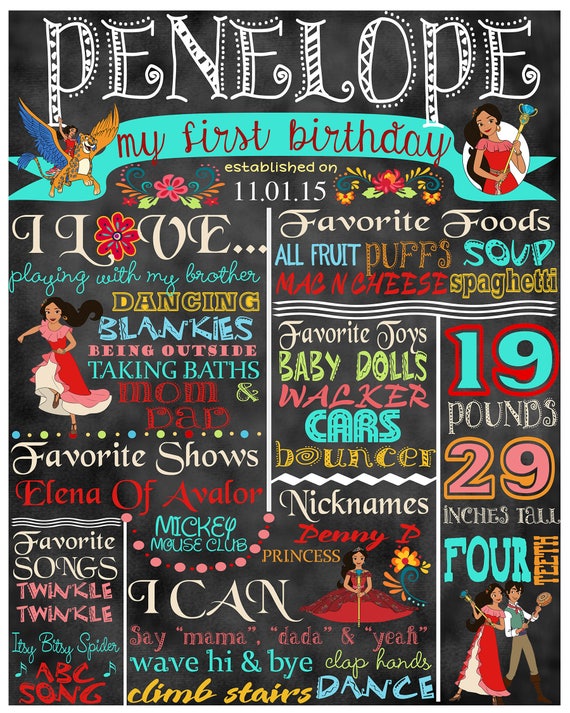 PENELOPE
my first birthday
established on
11.01.15
I LOVE...
playing with my brother
DANCING
BLANKIES
BEING OUTSIDE
TAKING BATHS
MOM &
DAD
Favorite Foods
ALL FRUIT PUFFS SOUP
MAC N CHEESE spaghetti
Favorite Toys
BABY DOLLS
WALKER
CARS
bouncer
19
POUNDS
29
INCHES TALL
FOUR TEETH
Favorite Shows
Elena Of Avalor
MICKEY
MOUSE CLUB
Nicknames
Penny P
PRINCESS
Favorite
SONGS
TWINKLE
TWINKLE
Itsy Bitsy Spider
ABC
SONG
I CAN
Say "mama", "dada" & "yeah"
wave hi & bye clap hands
climb stairs DANCE